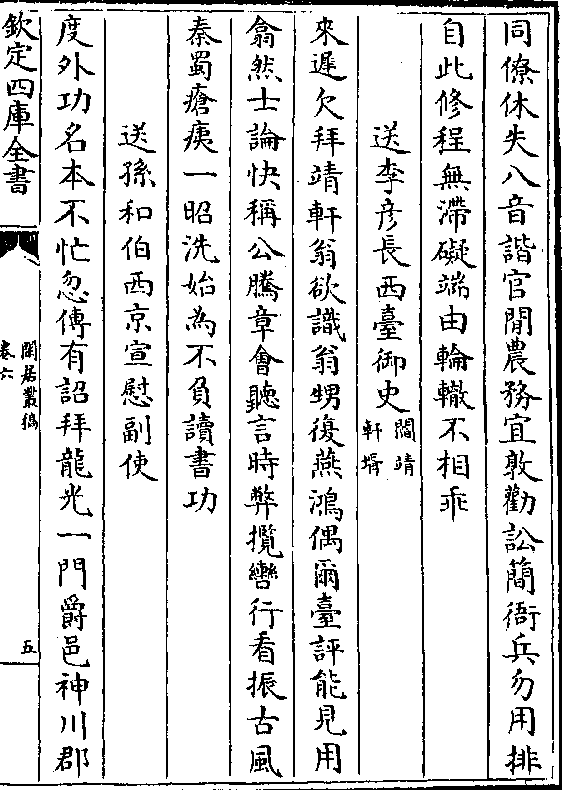 同僚休失八音諧官閒農務宜敦勸訟簡衙兵勿用排
自此修程無滯礙端由輪轍不相乖
送李彦長西臺御史閻靖軒壻
來遲欠拜靖軒翁欲識翁甥復燕鴻偶爾臺評能見用
翕然士論快稱公騰章會聽言時弊攬轡行看振古風
秦蜀瘡痍一昭洗始為不負讀書功
送孫和伯西京宣慰副使
度外功名本不忙忽傳有詔拜龍光一門爵邑神川郡
欽定四庫全書
閒居叢稿
卷六
五